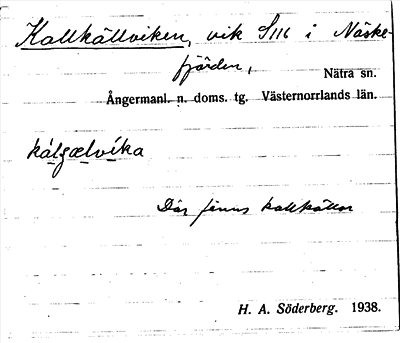 Kallkällviken, vik S116 i Näske-
fjärden, Nätra sn.
Ångermanl. n. doms. tg. Västernorrlands län.
kálgælvíka
Där finns kallkällor
H. A. Söderberg. 1938.